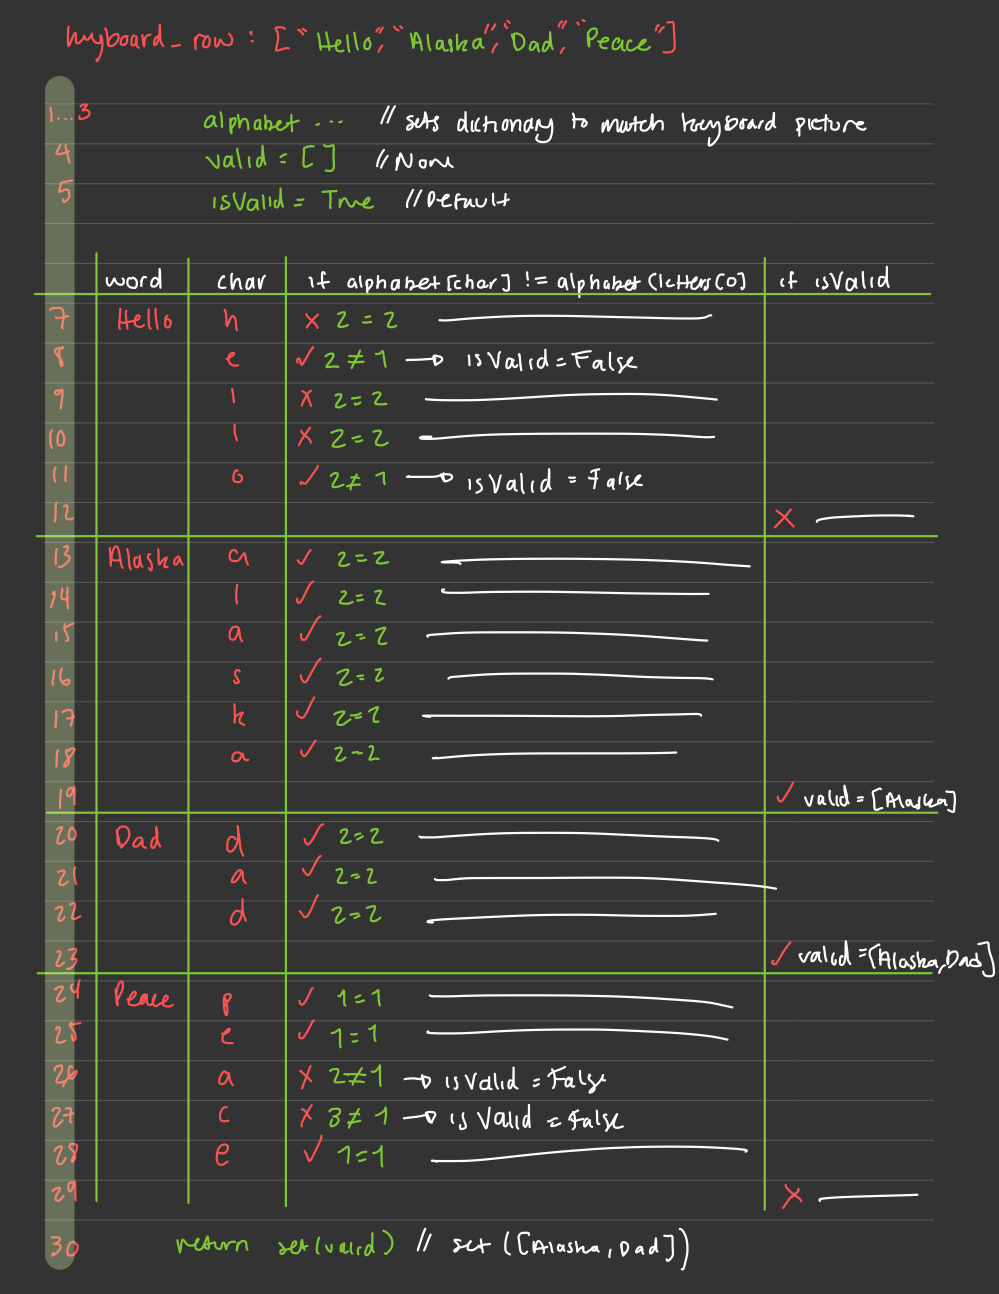 keyboard_row : ["Hello", "Alaska", "Dad", "Peace"]
1...3 alphabet ... // sets dictionary to match keyboard picture
4 valid = [] // None
5 isValid = True // Default
word char if alphabet[char] != alphabet(letters[0] if isValid
7 Hello h X 2 = 2
8 e ✓ 2 ≠ 1 → isValid = False
9 l X 2 = 2
10 l X 2 = 2
11 o ✓ 2 ≠ 1 → isValid = False
12 X
13 Alaska a ✓ 2 = 2
14 l ✓ 2 = 2
15 a ✓ 2 = 2
16 s ✓ 2 = 2
17 k ✓ 2 = 2
18 a ✓ 2 - 2
19 ✓ valid = [Alaska]
20 Dad d ✓ 2 = 2
21 a ✓ 2 = 2
22 d ✓ 2 = 2
23 ✓ valid = [Alaska, Dad]
24 Peace p ✓ 1 = 1
25 e ✓ 1 = 1
26 a X 2 ≠ 1 → isValid = False
27 c X 3 ≠ 1 → isValid = False
28 e ✓ 1 = 1
29 X
30 return set(valid) // set ([Alaska, Dad])